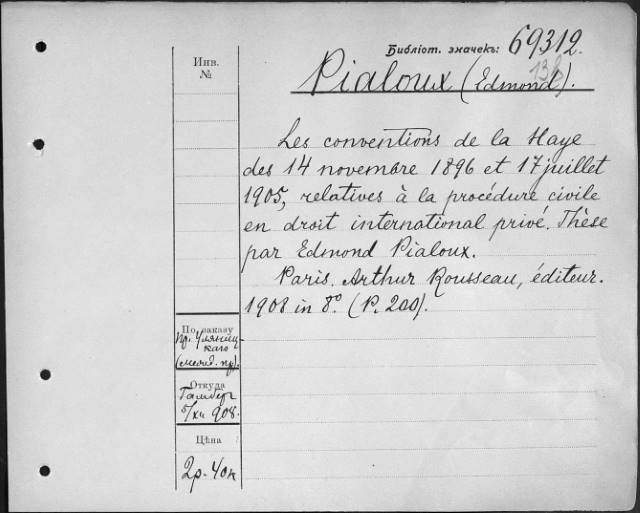 Библіот. значекъ: 69312.
138
Инв.
№
Pialoux (Edmond).
Les conventions de la Haye
des 14 novembre 1896 et 17 juillet
1905, relatives à la procédure civile
en droit international privé. Thèse
par Edmond Pialoux.
Paris. Arthur Rousseau, éditeur.
1908 in 8º. (P. 200).
По заказу
пр. Уляниц-
каго
Откуда
5/XII 908.
Цѣна
2р. 40к